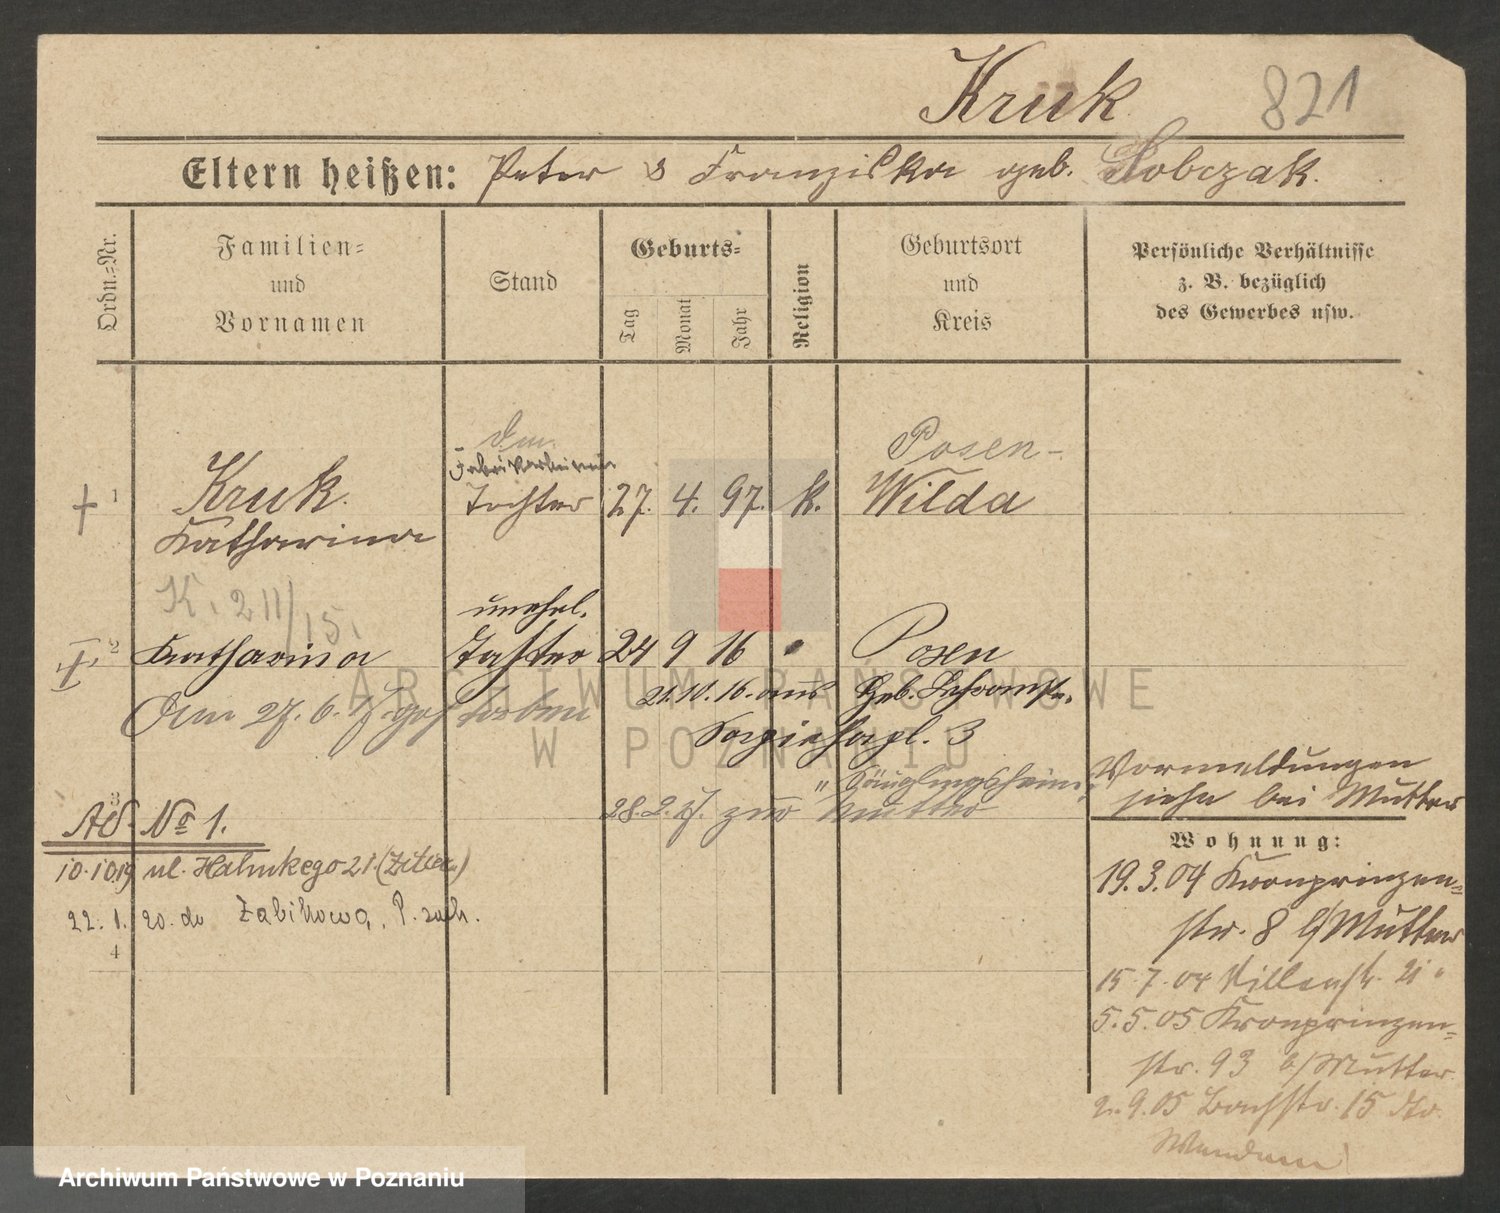 Kruk
821
Eltern heißen: Peter & Franziska geb. Sobczak.
Ordn.-Nr.
Familien-
und
Vornamen
Stand
Geburts-
Tag
Monat
Jahr
Religion
Geburtsort
und
Kreis
Persönliche Verhältnisse
z. B. bezüglich
des Gewerbes usw.
1
Kruk.
Katharina
Fabrikarbeiterin
Tochter
27. 4. 97. k.
Posen-
Wilda
K. 211/15.
2
Katharina
unehel.
Tochter
24 9 16 "
Posen
21.10.16. aus Heb. Lehranst.
Am 27. 6. 17. gestorben
Sapiehapl. 3
" Säuglingsheim
zur Mutter
Vormeldungen
siehe bei Mutter
3
Ad. No 1.
10.10.19 ul. Hahnkego 21.
22. 1. 20. do Żabikowa, P. zach.
4
Wohnung:
19.3.04 Kronprinzen-
str. 8 b/Mutter
15.7.04 Villenstr. 21 "
5.5.05 Kronprinzen-
str. 93 b/Mutter
2.9.05 Bachstr. 15 dto.
Wenden
ARCHIWUM PAŃSTWOWE
W POZNANIU
Archiwum Państwowe w Poznaniu